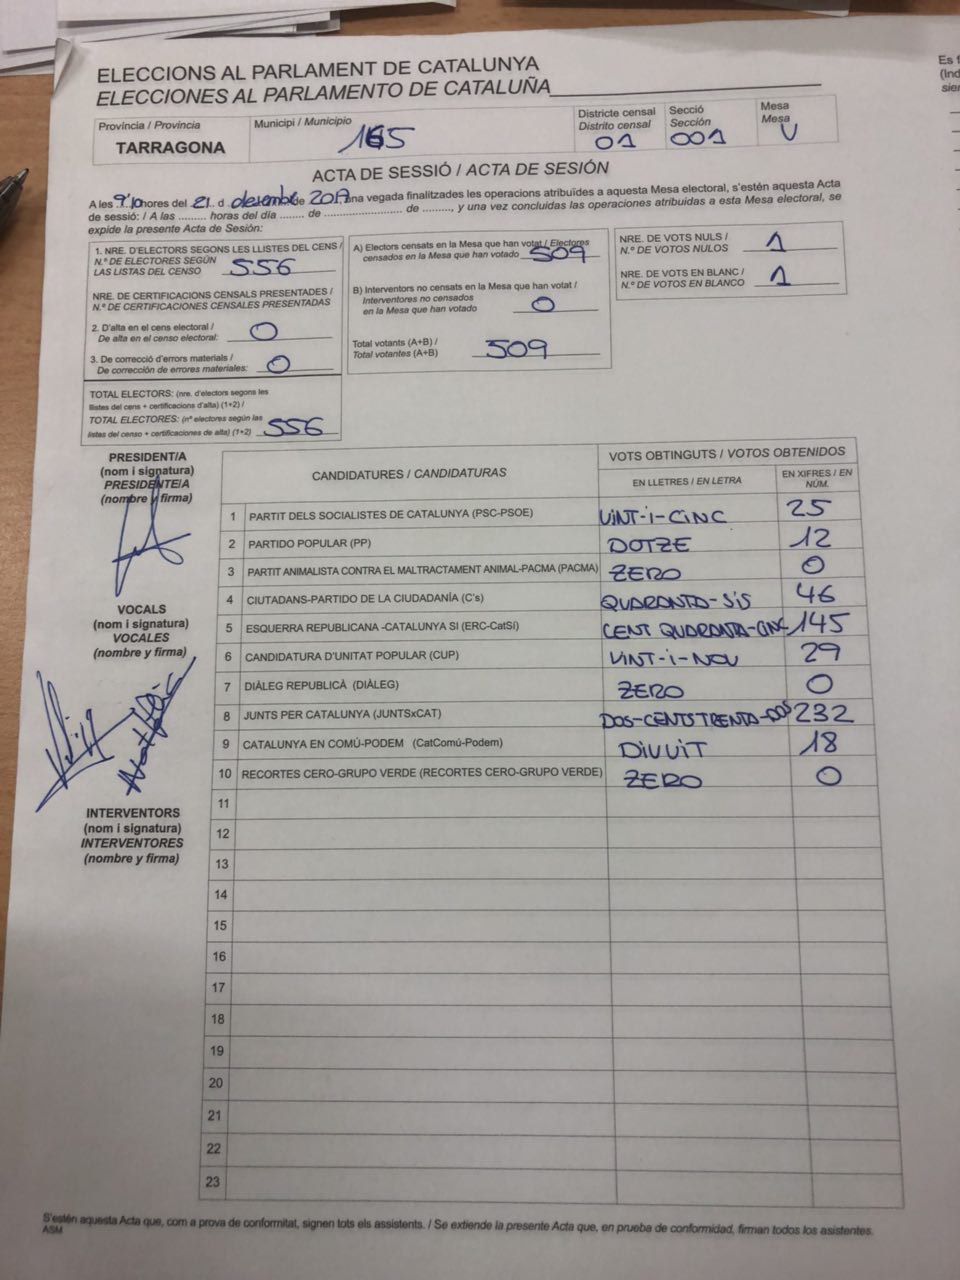 ELECCIONS AL PARLAMENT DE CATALUNYA
ELECCIONES AL PARLAMENTO DE CATALUÑA
Provincia / Provincia
TARRAGONA
Municipi / Municipio
165
Districte censal
Distrito censal
01
Secció
Sección
001
Mesa
Mesa
U
ACTA DE SESSIÓ / ACTA DE SESIÓN
A les 9'10 hores del 21 d desembre de 2017 una vegada finalitzades les operacions atribuïdes a aquesta Mesa electoral, s'estén aquesta Acta
de sessió: / A las ......... horas del día ........ de ........................ de ........., y una vez concluidas las operaciones atribuidas a esta Mesa electoral, se
expide la presente Acta de Sesión:
1. NRE. D'ELECTORS SEGONS LES LLISTES DEL CENS /
N.º DE ELECTORES SEGÚN
LAS LISTAS DEL CENSO 556
NRE. DE CERTIFICACIONS CENSALS PRESENTADES /
N.º DE CERTIFICACIONES CENSALES PRESENTADAS
2. D'alta en el cens electoral /
De alta en el censo electoral: 0
3. De correcció d'errors materials /
De corrección de errores materiales: 0
TOTAL ELECTORS: (nre. d'electors segons les
llistes del cens + certificacions d'alta) (1+2) /
TOTAL ELECTORES: (nº electores según las
listas del censo + certificaciones de alta) (1+2) 556
A) Electors censats en la Mesa que han votat / Electores
censados en la Mesa que han votado 509
B) Interventors no censats en la Mesa que han votat /
Interventores no censados
en la Mesa que han votado 0
Total votants (A+B) /
Total votantes (A+B) 509
NRE. DE VOTS NULS /
N.º DE VOTOS NULOS 1
NRE. DE VOTS EN BLANC /
N.º DE VOTOS EN BLANCO 1
PRESIDENT/A
(nom i signatura)
PRESIDENTE/A
(nombre y firma)
VOCALS
(nom i signatura)
VOCALES
(nombre y firma)
INTERVENTORS
(nom i signatura)
INTERVENTORES
(nombre y firma)
CANDIDATURES / CANDIDATURAS
VOTS OBTINGUTS / VOTOS OBTENIDOS
EN LLETRES / EN LETRA
EN XIFRES / EN
NÚM.
1 PARTIT DELS SOCIALISTES DE CATALUNYA (PSC-PSOE) VINT-I-CINC 25
2 PARTIDO POPULAR (PP) DOTZE 12
3 PARTIT ANIMALISTA CONTRA EL MALTRACTAMENT ANIMAL-PACMA (PACMA) ZERO 0
4 CIUTADANS-PARTIDO DE LA CIUDADANÍA (C's) QUARANTA-SIS 46
5 ESQUERRA REPUBLICANA -CATALUNYA SI (ERC-CatSí) CENT QUARANTA-CINC 145
6 CANDIDATURA D'UNITAT POPULAR (CUP) VINT-I-NOU 29
7 DIÀLEG REPUBLICÀ (DIÀLEG) ZERO 0
8 JUNTS PER CATALUNYA (JUNTSxCAT) DOS-CENTS TRENTA-DOS 232
9 CATALUNYA EN COMÚ-PODEM (CatComú-Podem) DIVUIT 18
10 RECORTES CERO-GRUPO VERDE (RECORTES CERO-GRUPO VERDE) ZERO 0
11
12
13
14
15
16
17
18
19
20
21
22
23
S'estén aquesta Acta que, com a prova de conformitat, signen tots els assistents. / Se extiende la presente Acta que, en prueba de conformidad, firman todos los asistentes.
ASM
Es f
(Ind
sien